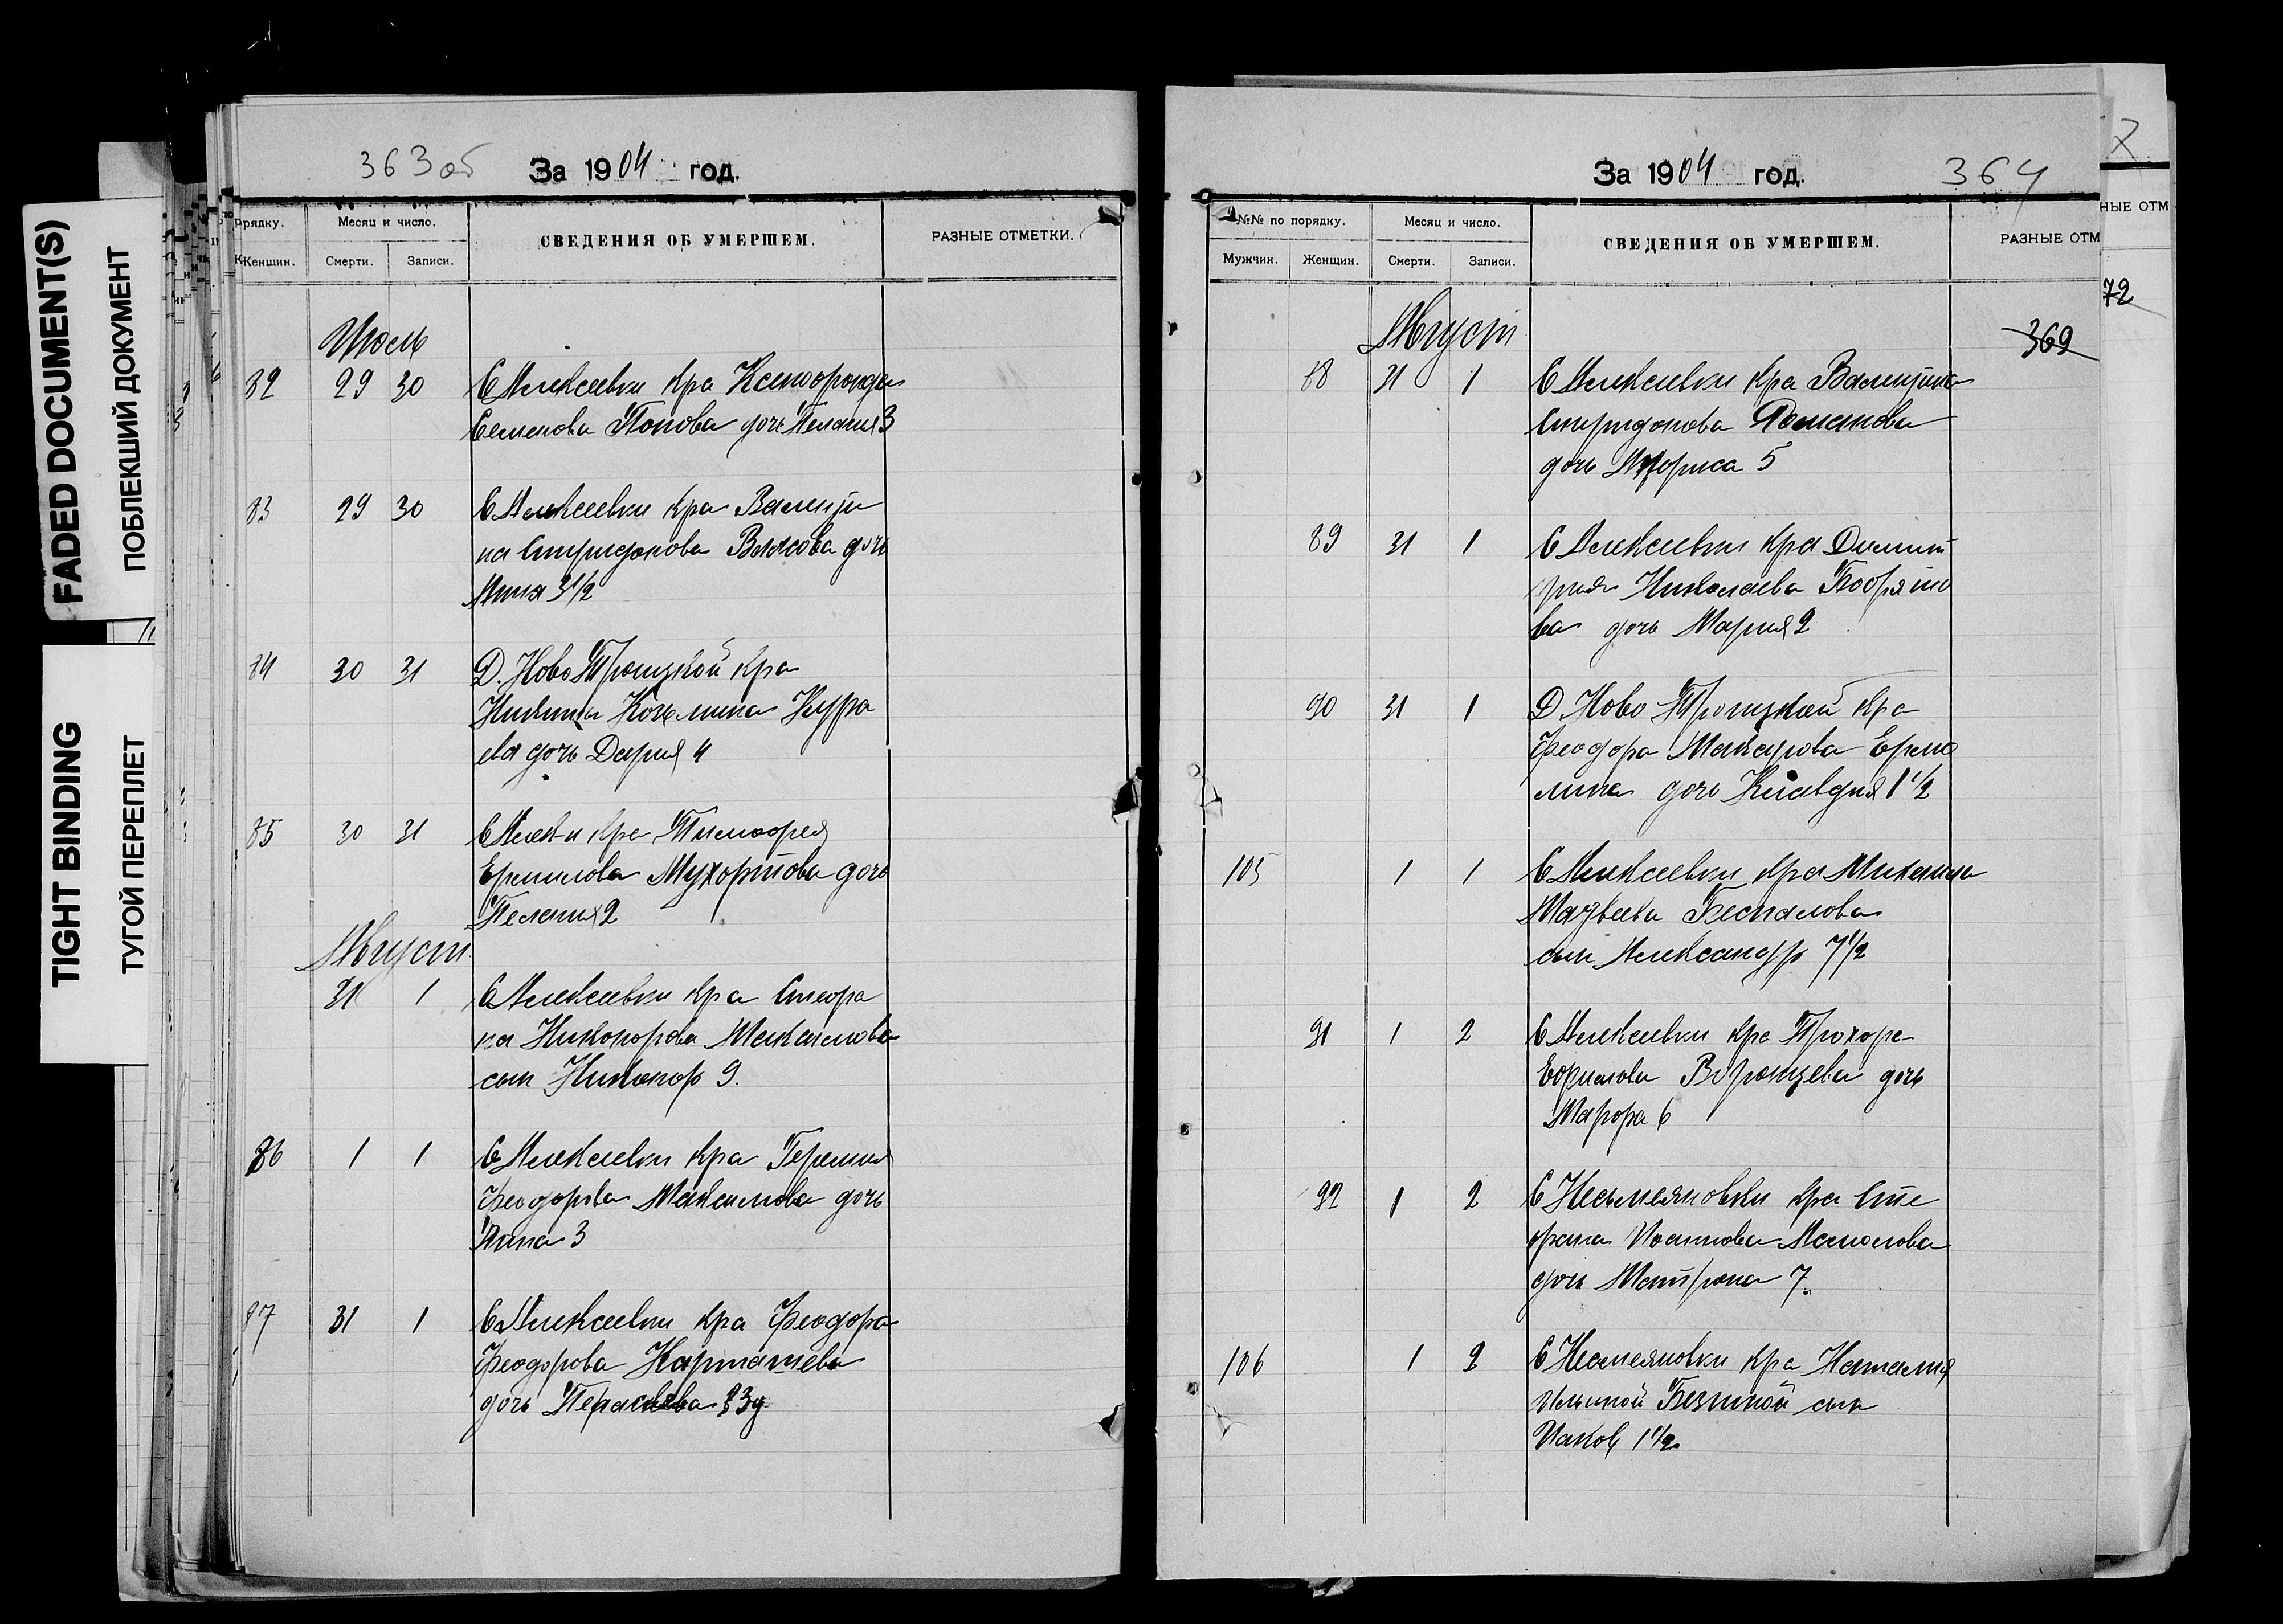 FADED DOCUMENT(S)
ПОБЛЕКШИЙ ДОКУМЕНТ
TIGHT BINDING
ТУГОЙ ПЕРЕПЛЕТ
363об За 1904 год.
рядку. Месяц и число. СВЕДЕНИЯ ОБ УМЕРШЕМ. РАЗНЫЕ ОТМЕТКИ.
Женщин. Смерти. Записи.
Июль
82 29 30 С Алексеевки кра Ксенофонда
Семенова Попова дочь Пелагия 3
83 29 30 С Алексеевки кра Валенти
на Спиридонова Власова дочь
Анна 3 1/2
84 30 31 Д. Ново Троицкой кра
Никиты Козьмина Кура
ева дочь Дария 4
85 30 31 С Алек-и кра Тимофея
Ермилова Мухортова дочь
Пелагия 2
Август
31 1 С Алексеевки кра Стефа
на Никонорова Максимова
сын Никонор 9.
86 1 1 С Алексеевки кра Герасима
Феодорова Максимова дочь
Анна 3
87 31 1 С Алексеевки кра Феодора
Феодорова Карташева
дочь Парасковья 3
За 1904 год. 364
№№ по порядку. Месяц и число. СВЕДЕНИЯ ОБ УМЕРШЕМ. РАЗНЫЕ ОТМ
Мужчин. Женщин. Смерти. Записи.
НЫЕ ОТМ
72
369
Август
88 31 1 С Алексеевки кра Валентина
Спиридонова Романова
дочь 5
89 31 1 С Алексеевки кра Димит
рия Николаева Бобряшо
ва дочь Мария 2
90 31 1 Д. Ново Троицкой кра
Феодора Макарова Ермо
лина дочь Клавдия 1 1/2
105 1 1 С Алексеевки кра Михаила
Матвеева Беспалова
сын Александр 7 1/2
91 1 2 С Алексеевки кра Прохора
Ефимова Воронцева дочь
Марфа 6
92 1 2 С Несмеяновки кра Сте
фана Иоаннова Манолова
дочь Матрона 7.
106 1 2 С Несмеяновки кра Наталия
Ильиной сын
Иаков 1 1/2